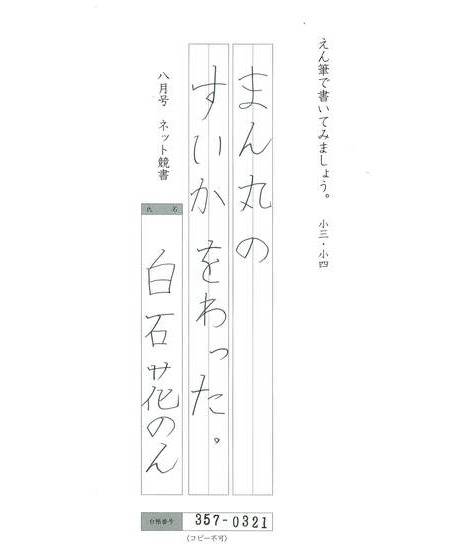 えん筆で書いてみましょう。 小三・小四
まん丸の
すいかをわった。
八月号 ネット競書
氏名
白石花のん
台帳番号 357-0321
(コピー不可)